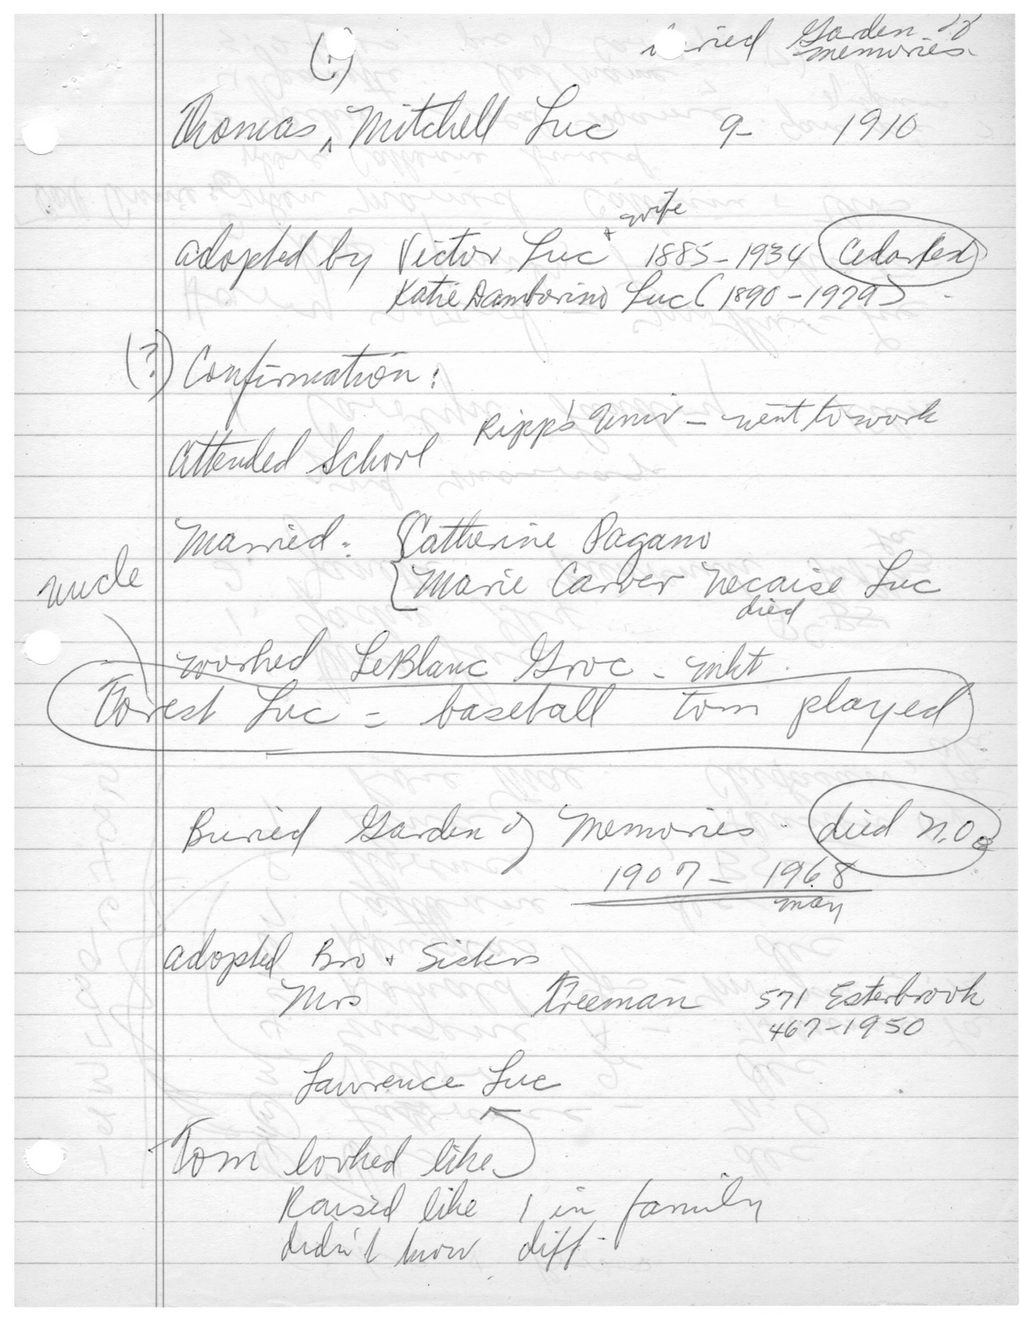 Buried Garden of
memories.
(?)
Thomas ^ Mitchell Luc 9- 1910
+ wife
adopted by Victor Luc 1885-1934 Cedar Rest
Katie Damborino Luc (1890-1979)
(?) Confirmation:
Ripp's Univ - went to work
Attended School
Married: { Catherine Pagano
{ Marie Carver Necaise Luc
died
uncle
worked LeBlanc Groc - mkt.
Forest Luc = baseball Tom played
Buried Garden of Memories. died N.O.
1907 - 1968
may
adopted Bro + Sisters
Mrs Freeman 571 Esterbrook
467-1950
Lawrence Luc
Tom looked like
Raised like 1 in family
didn't know diff.